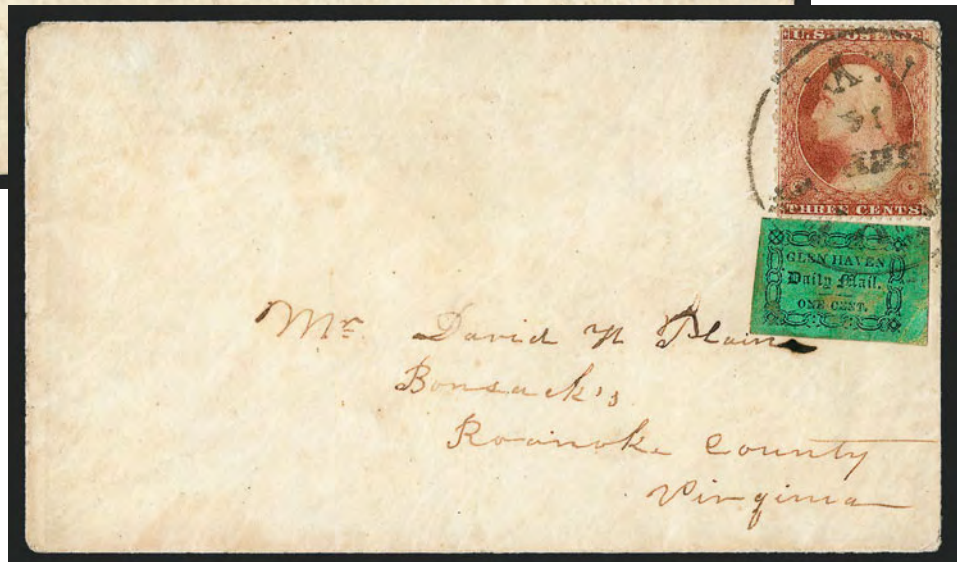 U.S. POSTAGE
THREE CENTS
GLEN HAVEN
Daily Mail.
ONE CENT.
Mr. David
Bonsack's
Roanoke County
Virginia